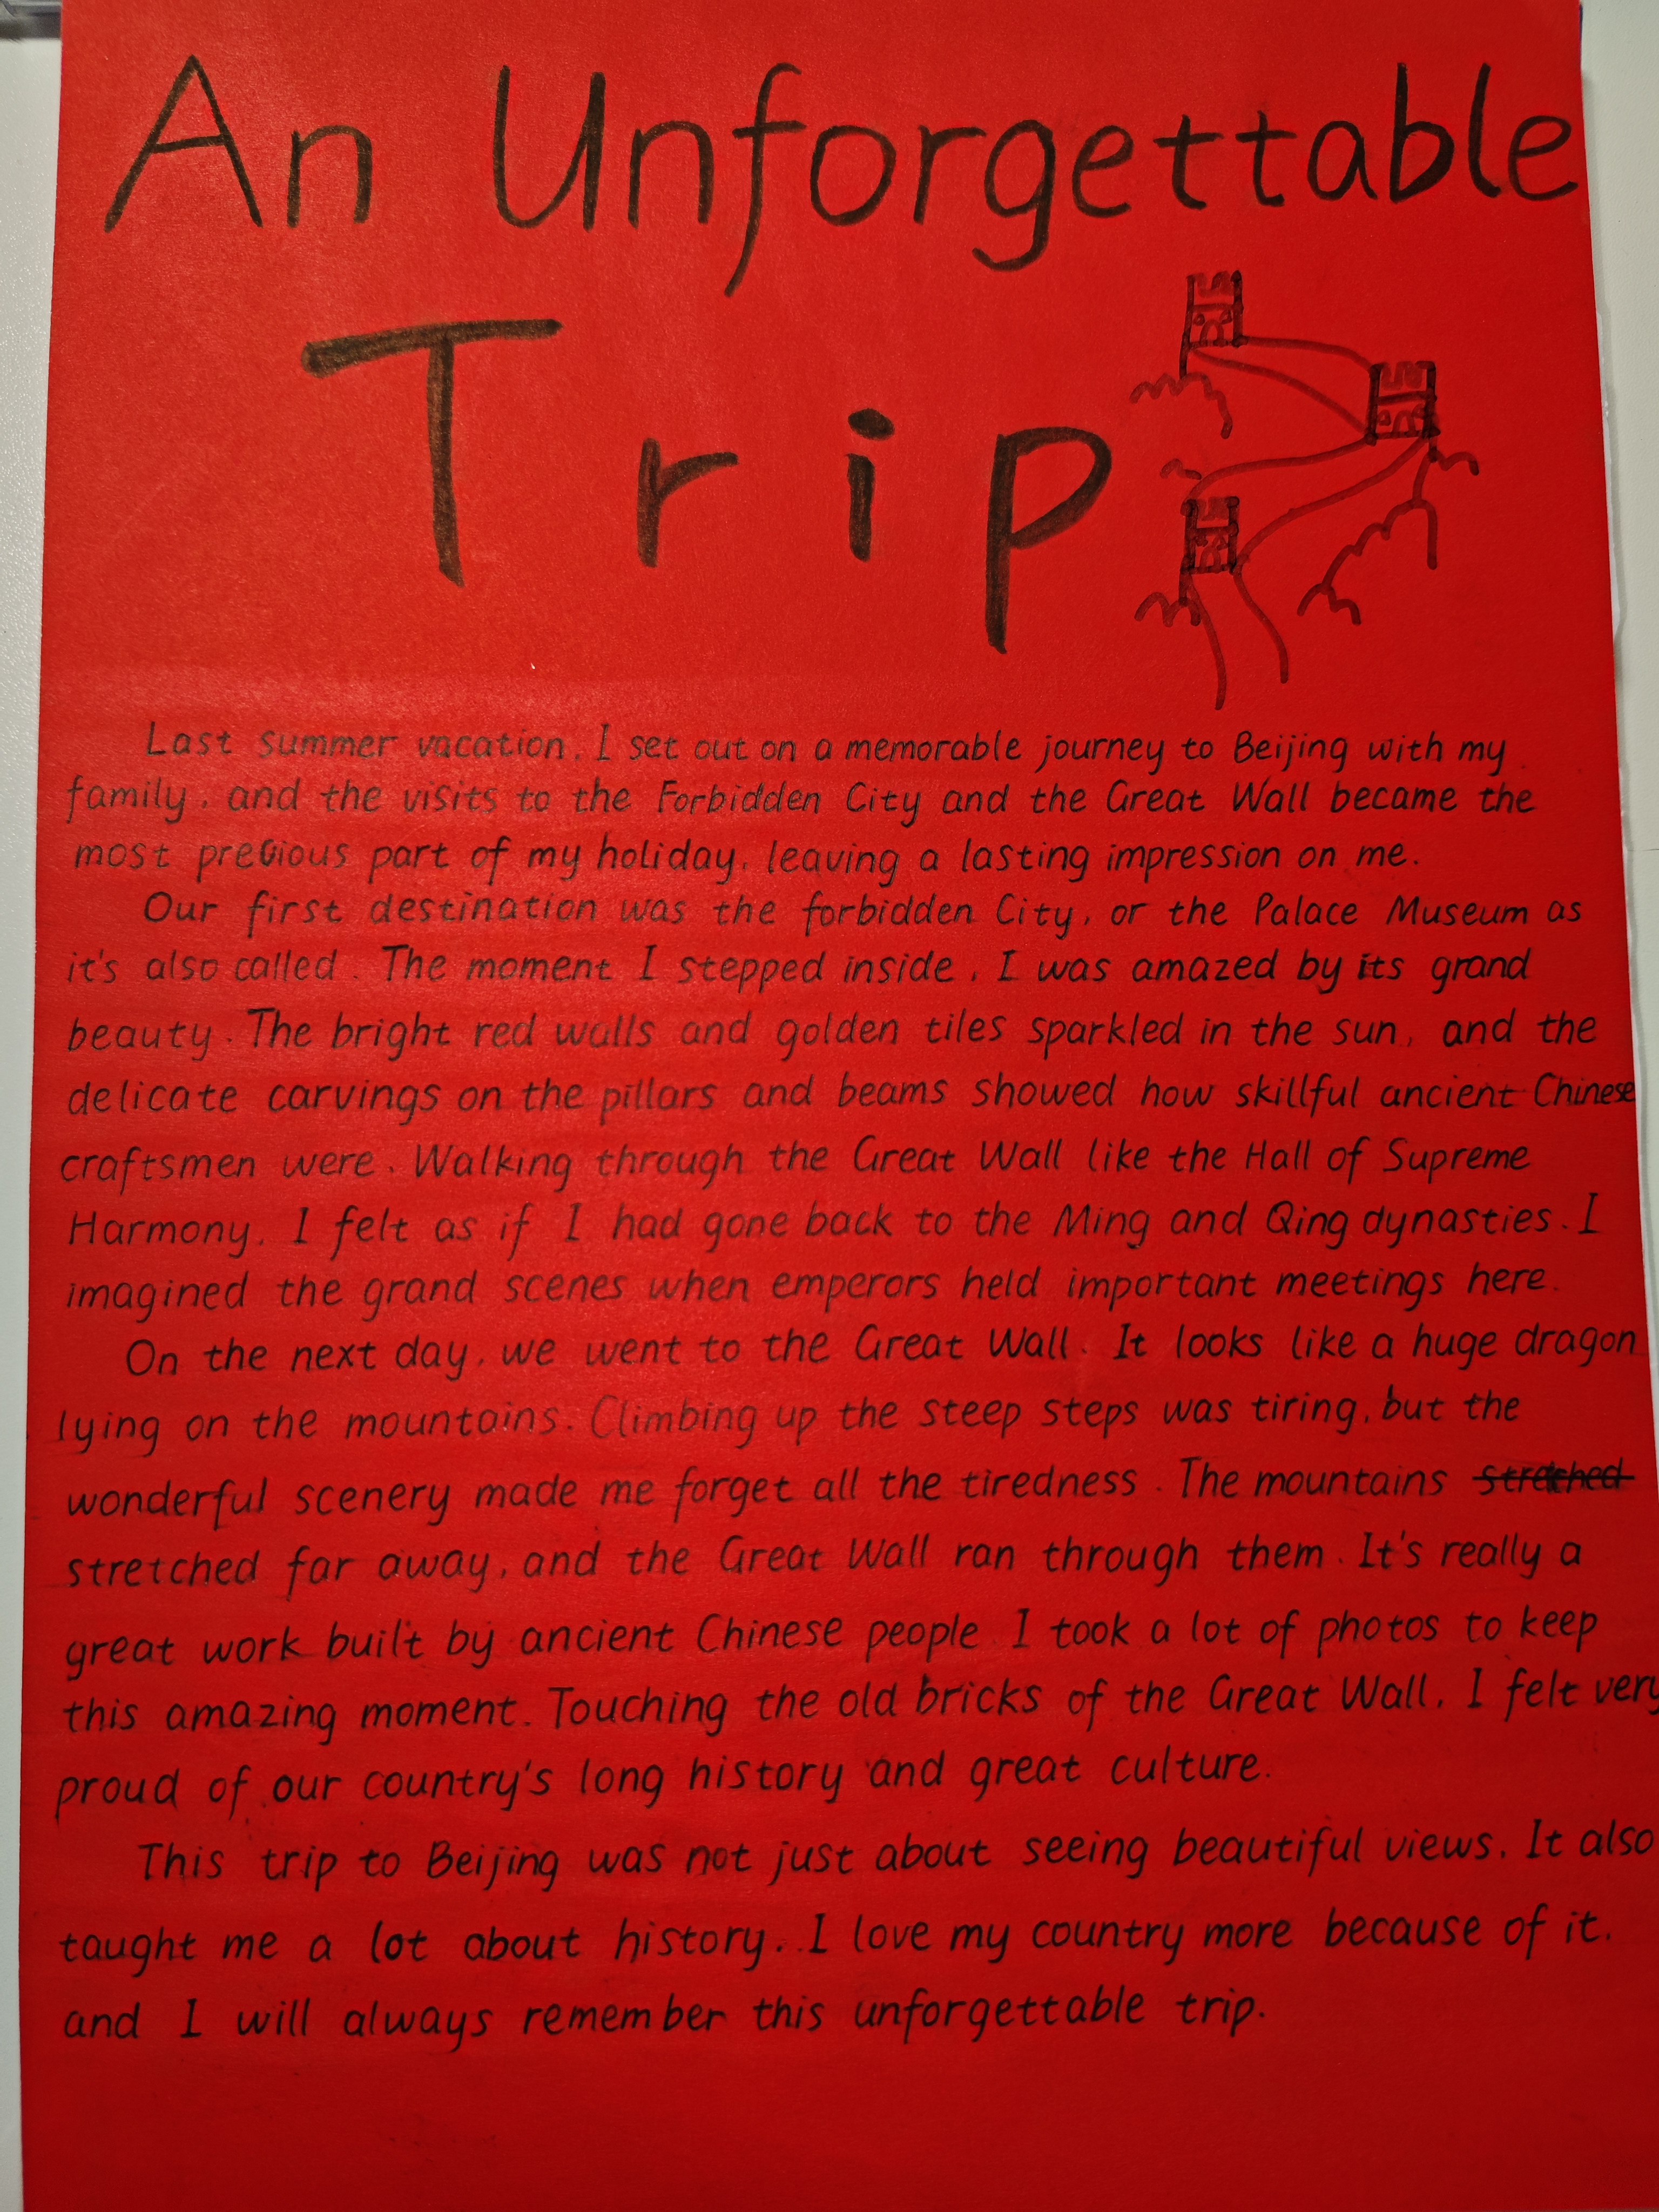 An Unforgettable
Trip
Last summer vacation, I set out on a memorable journey to Beijing with my
family, and the visits to the Forbidden City and the Great Wall became the
most precious part of my holiday, leaving a lasting impression on me.
Our first destination was the forbidden City, or the Palace Museum as
it's also called. The moment I stepped inside, I was amazed by its grand
beauty. The bright red walls and golden tiles sparkled in the sun, and the
delicate carvings on the pillars and beams showed how skillful ancient Chinese
craftsmen were. Walking through the Great Wall like the Hall of Supreme
Harmony, I felt as if I had gone back to the Ming and Qing dynasties. I
imagined the grand scenes when emperors held important meetings here.
On the next day, we went to the Great Wall. It looks like a huge dragon
lying on the mountains. Climbing up the steep steps was tiring, but the
wonderful scenery made me forget all the tiredness. The mountains
stretched far away, and the Great Wall ran through them. It's really a
great work built by ancient Chinese people. I took a lot of photos to keep
this amazing moment. Touching the old bricks of the Great Wall, I felt very
proud of our country's long history and great culture.
This trip to Beijing was not just about seeing beautiful views. It also
taught me a lot about history. I love my country more because of it,
and I will always remember this unforgettable trip.